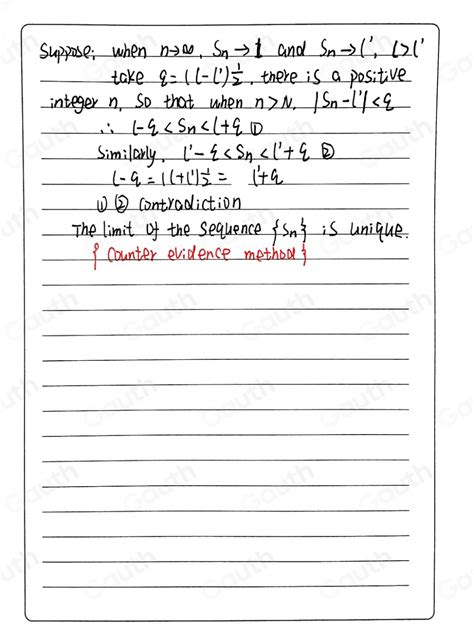 Suppose: when n→∞, Sn→l and Sn→l', l>l'
take ε=(l-l')½, there is a positive
integer n, so that when n>N, |Sn-l'|<ε
∴ l-ε<Sn<l+ε ①
Similarly, l'-ε<Sn<l'+ε ②
l-ε=(l+l')½= l'+ε
① ② contradiction
The limit of the sequence {Sn} is unique.
{ Counter evidence method }